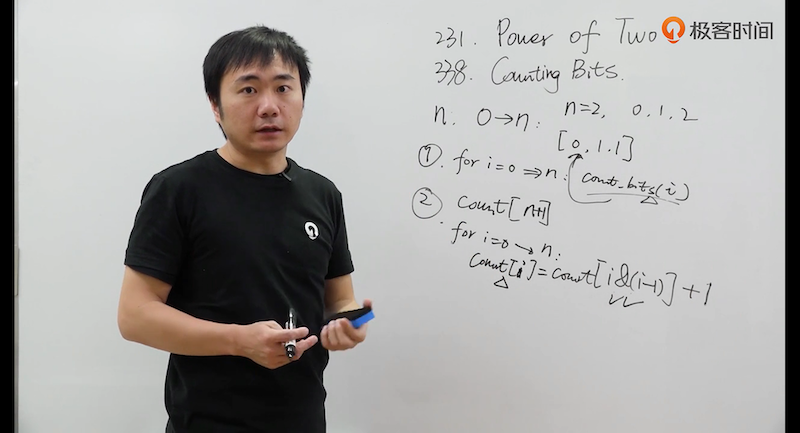 231. Power of Two
极客时间
338. Counting Bits.
n. 0→n: n=2, 0.1.2
[0,1.1]
①. for i=0 ⇒ n: count_bits(i)
② Count[n+1]
for i=0 → n:
Count[i]=count[i&(i-1)]+1